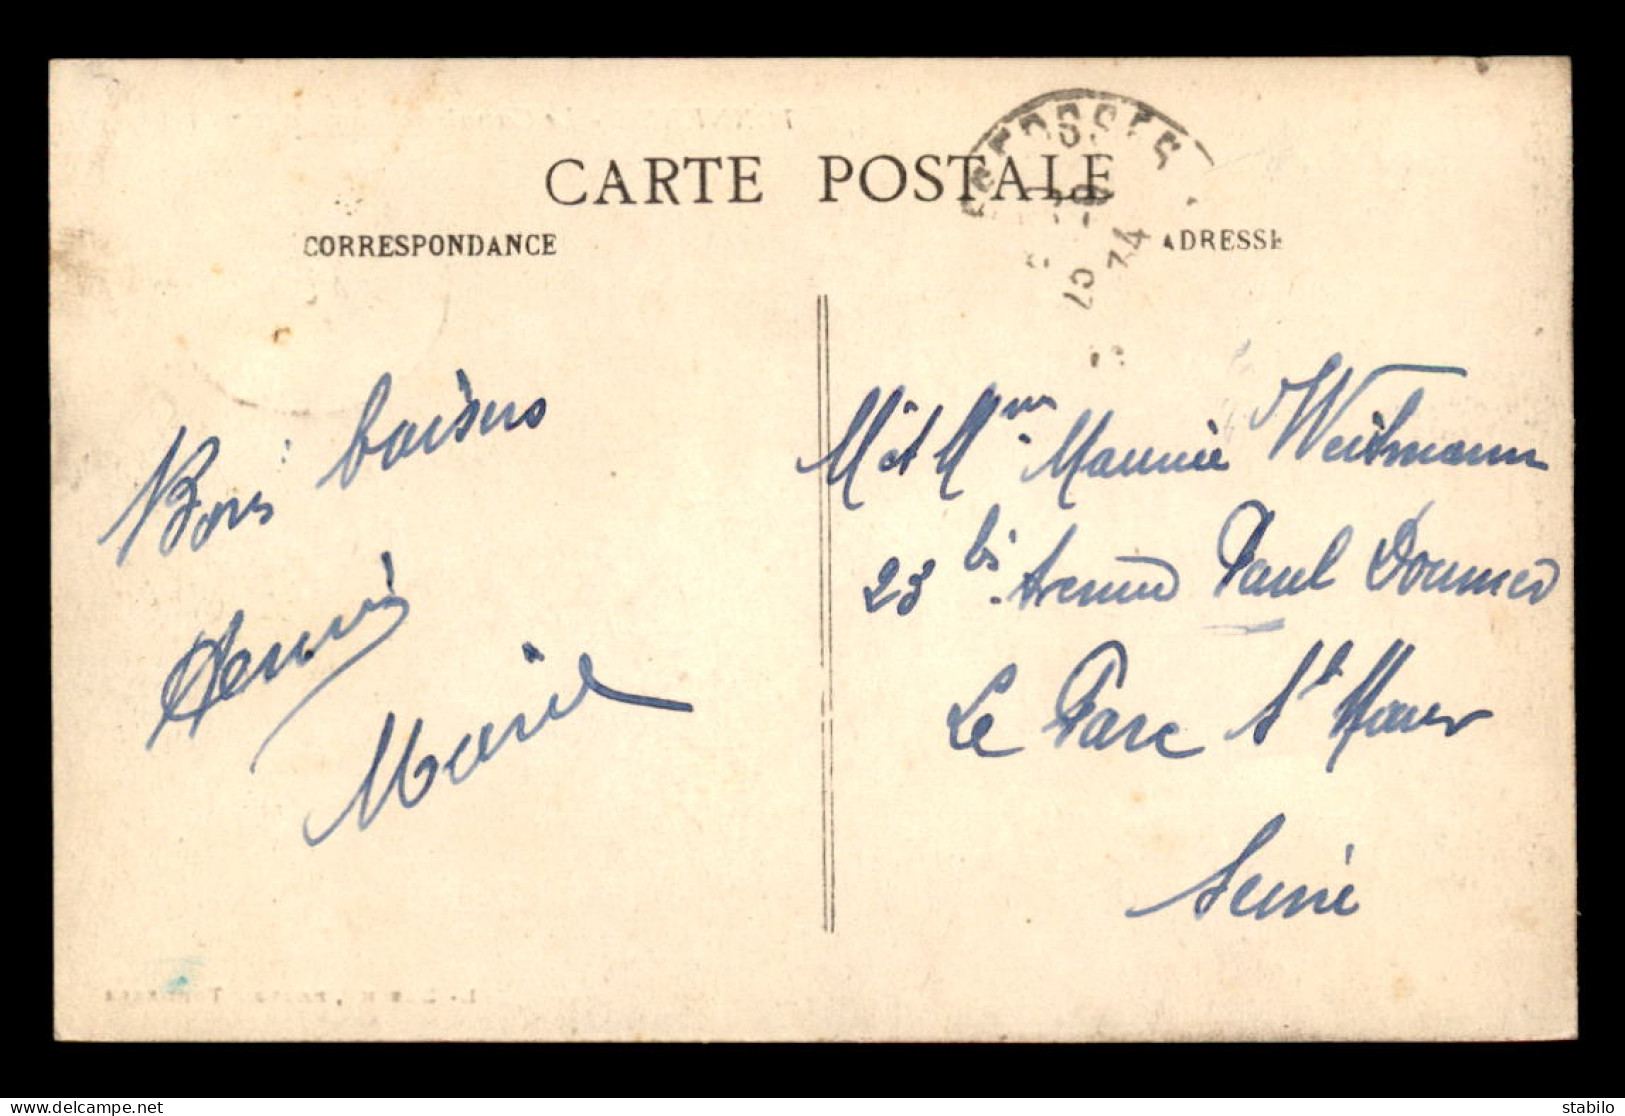 CARTE POSTALE
CORRESPONDANCE
ADRESSE
Bons baisers
Henri
Marie
M et Mme Maurice Weitmann
23 bis Avenue Paul Doumer
Le Parc St Maur
Seine
stabilo